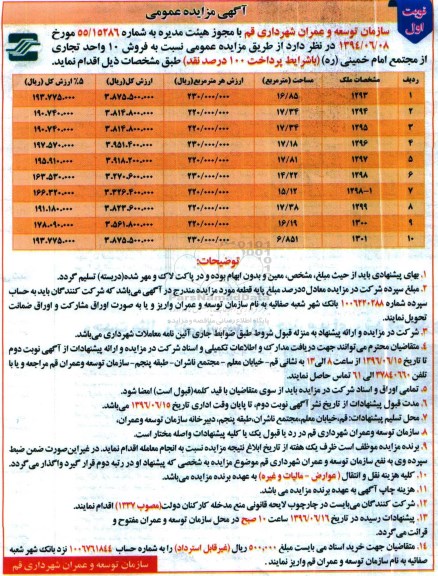 نوبت اول
آگهی مزایده عمومی
سازمان توسعه و عمران شهرداری قم با مجوز هیئت مدیره به شماره ۵۵/۱۵۲۸۶ مورخ
۱۳۹۴/۰۶/۰۸ در نظر دارد از طریق مزایده عمومی نسبت به فروش ۱۰ واحد تجاری
از مجتمع امام خمینی (ره) (باشرایط پرداخت ۱۰۰ درصد نقد) طبق مشخصات ذیل اقدام نماید.
ردیف مشخصات ملک مساحت (مترمربع) ارزش هر مترمربع(ریال) ارزش کل(ریال) ۵٪ ارزش کل (ریال)
۱ ۱۲۹۳ ۱۶/۸۵ ۲۳۰/۰۰۰/۰۰۰ ۳.۸۷۵.۵۰۰.۰۰۰ ۱۹۳.۷۷۵.۰۰۰
۲ ۱۲۹۴ ۱۷/۳۴ ۲۲۰/۰۰۰/۰۰۰ ۳.۸۱۴.۸۰۰.۰۰۰ ۱۹۰.۷۴۰.۰۰۰
۳ ۱۲۹۵ ۱۷/۳۴ ۲۲۰/۰۰۰/۰۰۰ ۳.۸۱۴.۸۰۰.۰۰۰ ۱۹۰.۷۴۰.۰۰۰
۴ ۱۲۹۶ ۱۷/۱۸ ۲۳۰/۰۰۰/۰۰۰ ۳.۹۵۱.۴۰۰.۰۰۰ ۱۹۷.۵۷۰.۰۰۰
۵ ۱۲۹۷ ۱۷/۸۱ ۲۲۰/۰۰۰/۰۰۰ ۳.۹۱۸.۲۰۰.۰۰۰ ۱۹۵.۹۱۰.۰۰۰
۶ ۱۲۹۸ ۱۴/۲۲ ۲۳۰/۰۰۰/۰۰۰ ۳.۲۷۰.۶۰۰.۰۰۰ ۱۶۳.۵۳۰.۰۰۰
۷ ۱۲۹۸-۱ ۱۵/۱۲ ۲۲۰/۰۰۰/۰۰۰ ۳.۳۲۶.۴۰۰.۰۰۰ ۱۶۶.۳۲۰.۰۰۰
۸ ۱۲۹۹ ۱۷/۳۸ ۲۲۰/۰۰۰/۰۰۰ ۳.۸۲۳.۶۰۰.۰۰۰ ۱۹۱.۱۸۰.۰۰۰
۹ ۱۳۰۰ ۱۶/۱۹ ۲۲۰/۰۰۰/۰۰۰ ۳.۵۶۱.۸۰۰.۰۰۰ ۱۷۸.۰۹۰.۰۰۰
۱۰ ۱۳۰۱ ۶/۸۵۱ ۲۳۰/۰۰۰/۰۰۰ ۳.۸۷۵.۵۰۰.۰۰۰ ۱۹۳.۷۷۵.۰۰۰
توضیحات:
۱. بهای پیشنهادی باید از حیث مبلغ، مشخص، معین و بدون ابهام بوده و در پاکت لاک و مهر شده(دربسته) تسلیم گردد.
۲. مبلغ سپرده شرکت در مزایده معادل ۵درصد مبلغ پایه قطعه مورد مزایده مندرج در آگهی می‌باشد که شرکت کنندگان باید به حساب
سپرده شماره ۱۰۰۶۲۲۰۲۸۸ بانک شهر شعبه صفائیه به نام سازمان توسعه و عمران واریز و یا به صورت اوراق مشارکت و اوراق ضمانت
تحویل نمایند.
۳. شرکت در مزایده و ارائه پیشنهاد به منزله قبول شروط طبق ضوابط جاری آئین نامه معاملات شهرداری می‌باشد.
۴. متقاضیان محترم می‌توانند جهت دریافت مدارک و اطلاعات تکمیلی و اسناد شرکت در مزایده و ارائه پیشنهادات از آگهی نوبت دوم
تا تاریخ ۱۳۹۶/۰۶/۱۵ از ساعت ۸ الی ۱۳ به نشانی قم- خیابان معلم - مجتمع ناشران- طبقه پنجم- سازمان توسعه وعمران قم مراجعه و یا با
تلفن ۳۷۸۴۰۶۶۰ الی ۶۱ تماس حاصل نمایند.
۵. تمامی اوراق و اسناد شرکت در مزایده باید از سوی متقاضیان با قید کلمه(قبول است) امضا شود.
۶. مدت قبول پیشنهادات از تاریخ نشر آگهی نوبت دوم، تا پایان وقت اداری تاریخ ۱۳۹۶/۰۶/۱۵ می‌باشد.
۷. محل تسلیم پیشنهادات: قم،خیابان معلم،مجتمع ناشران،طبقه پنجم،دبیرخانه سازمان توسعه وعمران،
۸. سازمان توسعه وعمران شهرداری قم در رد یا قبول یک یا کلیه پیشنهادات واصله مختار است.
۹. برنده مزایده موظف است ظرف یک هفته از تاریخ ابلاغ نتیجه مزایده نسبت به انجام معامله اقدام نماید. در غیراین‌صورت ضمن ضبط
سپرده وی به نفع سازمان توسعه و عمران شهرداری قم موضوع مزایده به شخصی که پیشنهاد او در رتبه دوم قرار گیرد واگذار می‌گردد.
۱۰. کلیه هزینه نقل و انتقال ( عوارض - مالیات و غیره) به عهده برنده مزایده می‌باشد.
۱۱. هزینه چاپ آگهی به عهده برنده مزایده می باشد.
۱۲. شرکت کنندگان می‌بایست در چارچوب لایحه قانونی منع مداخله کارکنان دولت(مصوب ۱۳۳۷) اقدام نمایند.
۱۳. پیشنهادات رسیده در تاریخ ۱۳۹۶/۰۶/۱۶ ساعت ۱۰ صبح در محل سازمان توسعه و عمران مفتوح و
قرائت می‌گردد.
۱۴. متقاضیان جهت خرید اسناد می بایست مبلغ ۵۰۰,۰۰۰ ریال (غیرقابل استرداد) را به شماره حساب ۱۰۰۶۷۶۱۸۴۴ نزد بانک شهر شعبه
صفائیه به نام سازمان توسعه و عمران قم واریز نمایند.
سازمان توسعه و عمران شهرداری قم